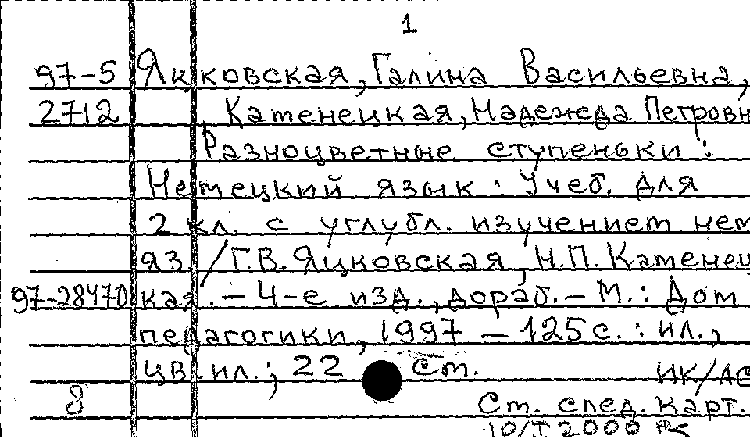 1
97-5 Яцковская, Галина Васильевна,
2712 Каменецкая, Надежда Петровн
Разноцветные ступеньки:
Немецкий язык: Учеб. для
2 кл. с углубл. изучением нем
яз. / Г.В. Яцковская, Н.П. Каменец
97-28470 кая. - 4-е изд., дораб. - М.: Дом
педагогики, 1997 - 125 с. : ил.,
цв. ил.; 22 см.
ИК/АС
8 См. след. карт.
10/I 2000